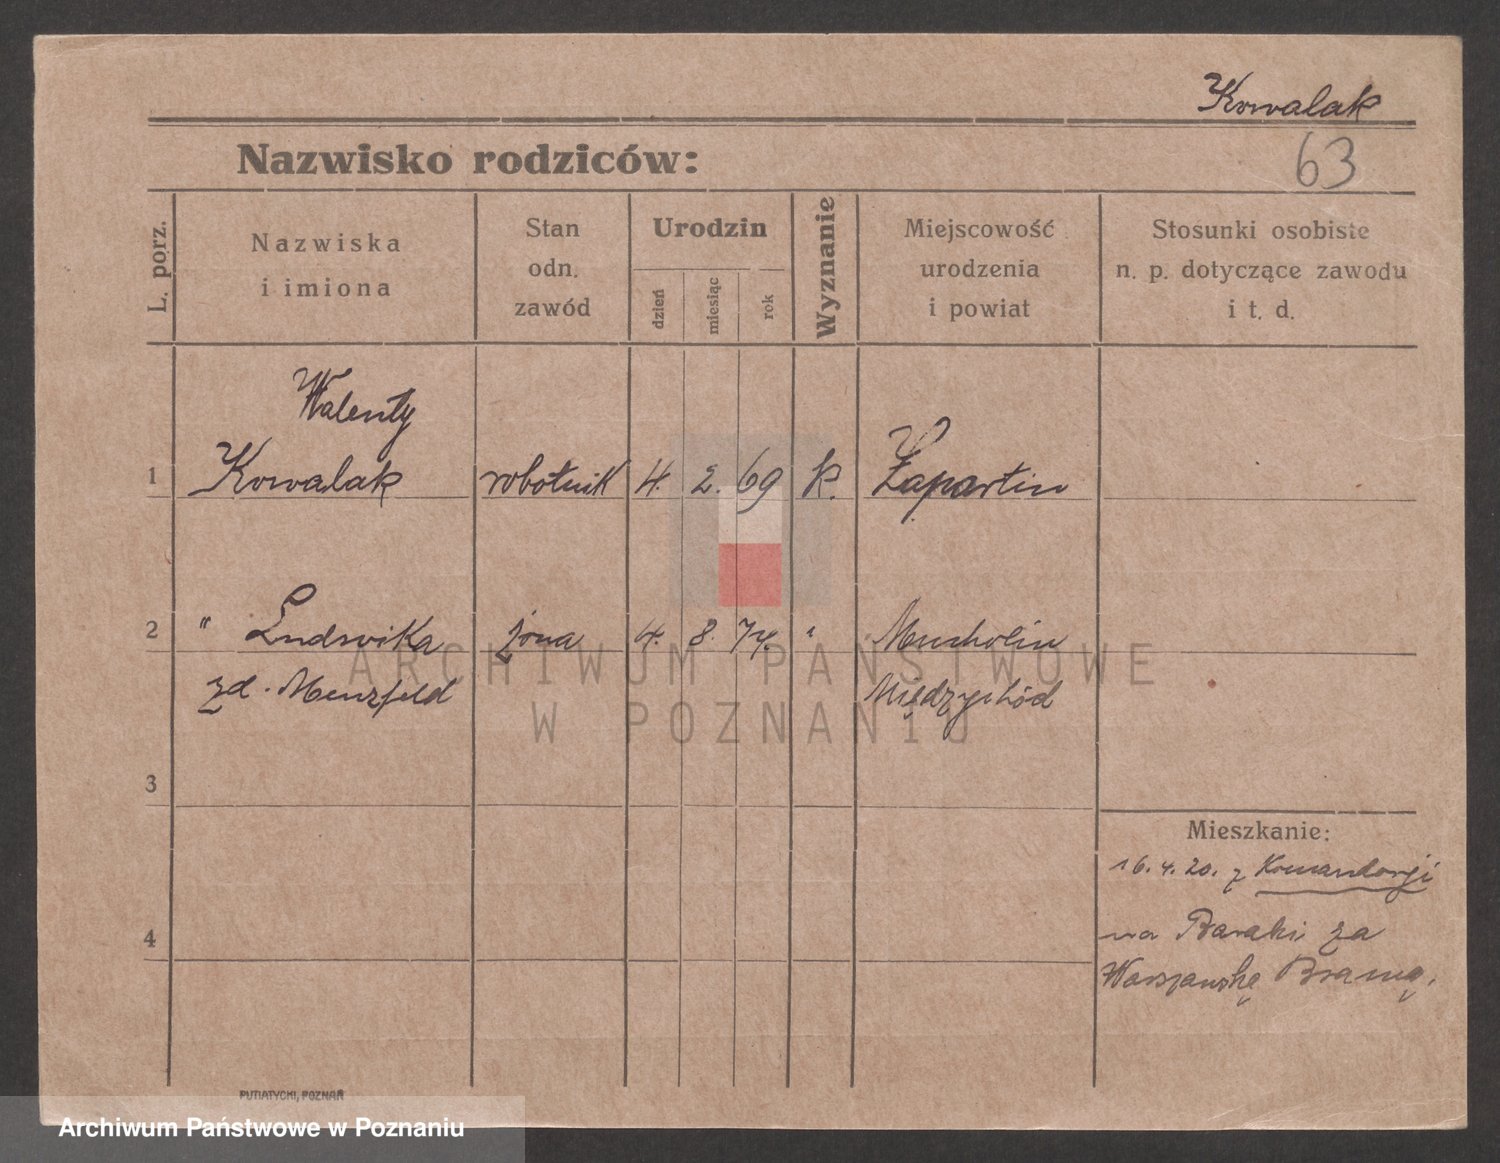 Kowalak
Nazwisko rodziców:
63
L. porz.
Nazwiska
i imiona
Stan
odn.
zawód
Urodzin
dzień
miesiąc
rok
Wyznanie
Miejscowość
urodzenia
i powiat
Stosunki osobiste
n. p. dotyczące zawodu
i t. d.
Walenty
1 Kowalak robotnik 4. 2. 69 k. Zapartin
2 " Ludwika żona 4. 8. 74. " Mucholin
zd. Menzfeld Międzychód
3
Mieszkanie:
16. 4. 20. z Komandorji
na Baraki za
4
Warszawską Bramą.
PUTIATYCKI, POZNAŃ
ARCHIWUM PAŃSTWOWE
W POZNANIU
Archiwum Państwowe w Poznaniu